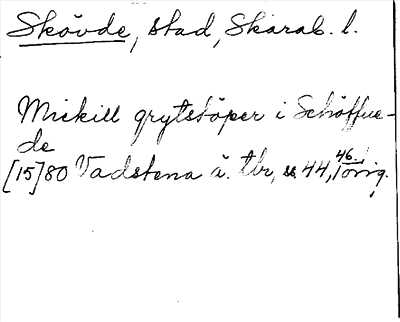 Skövde, stad, Skarab. l.
Mickill grytstöper i Schöffue-
de
[15]80 Vadstena ä. tbr, s. 44, 46. orig.